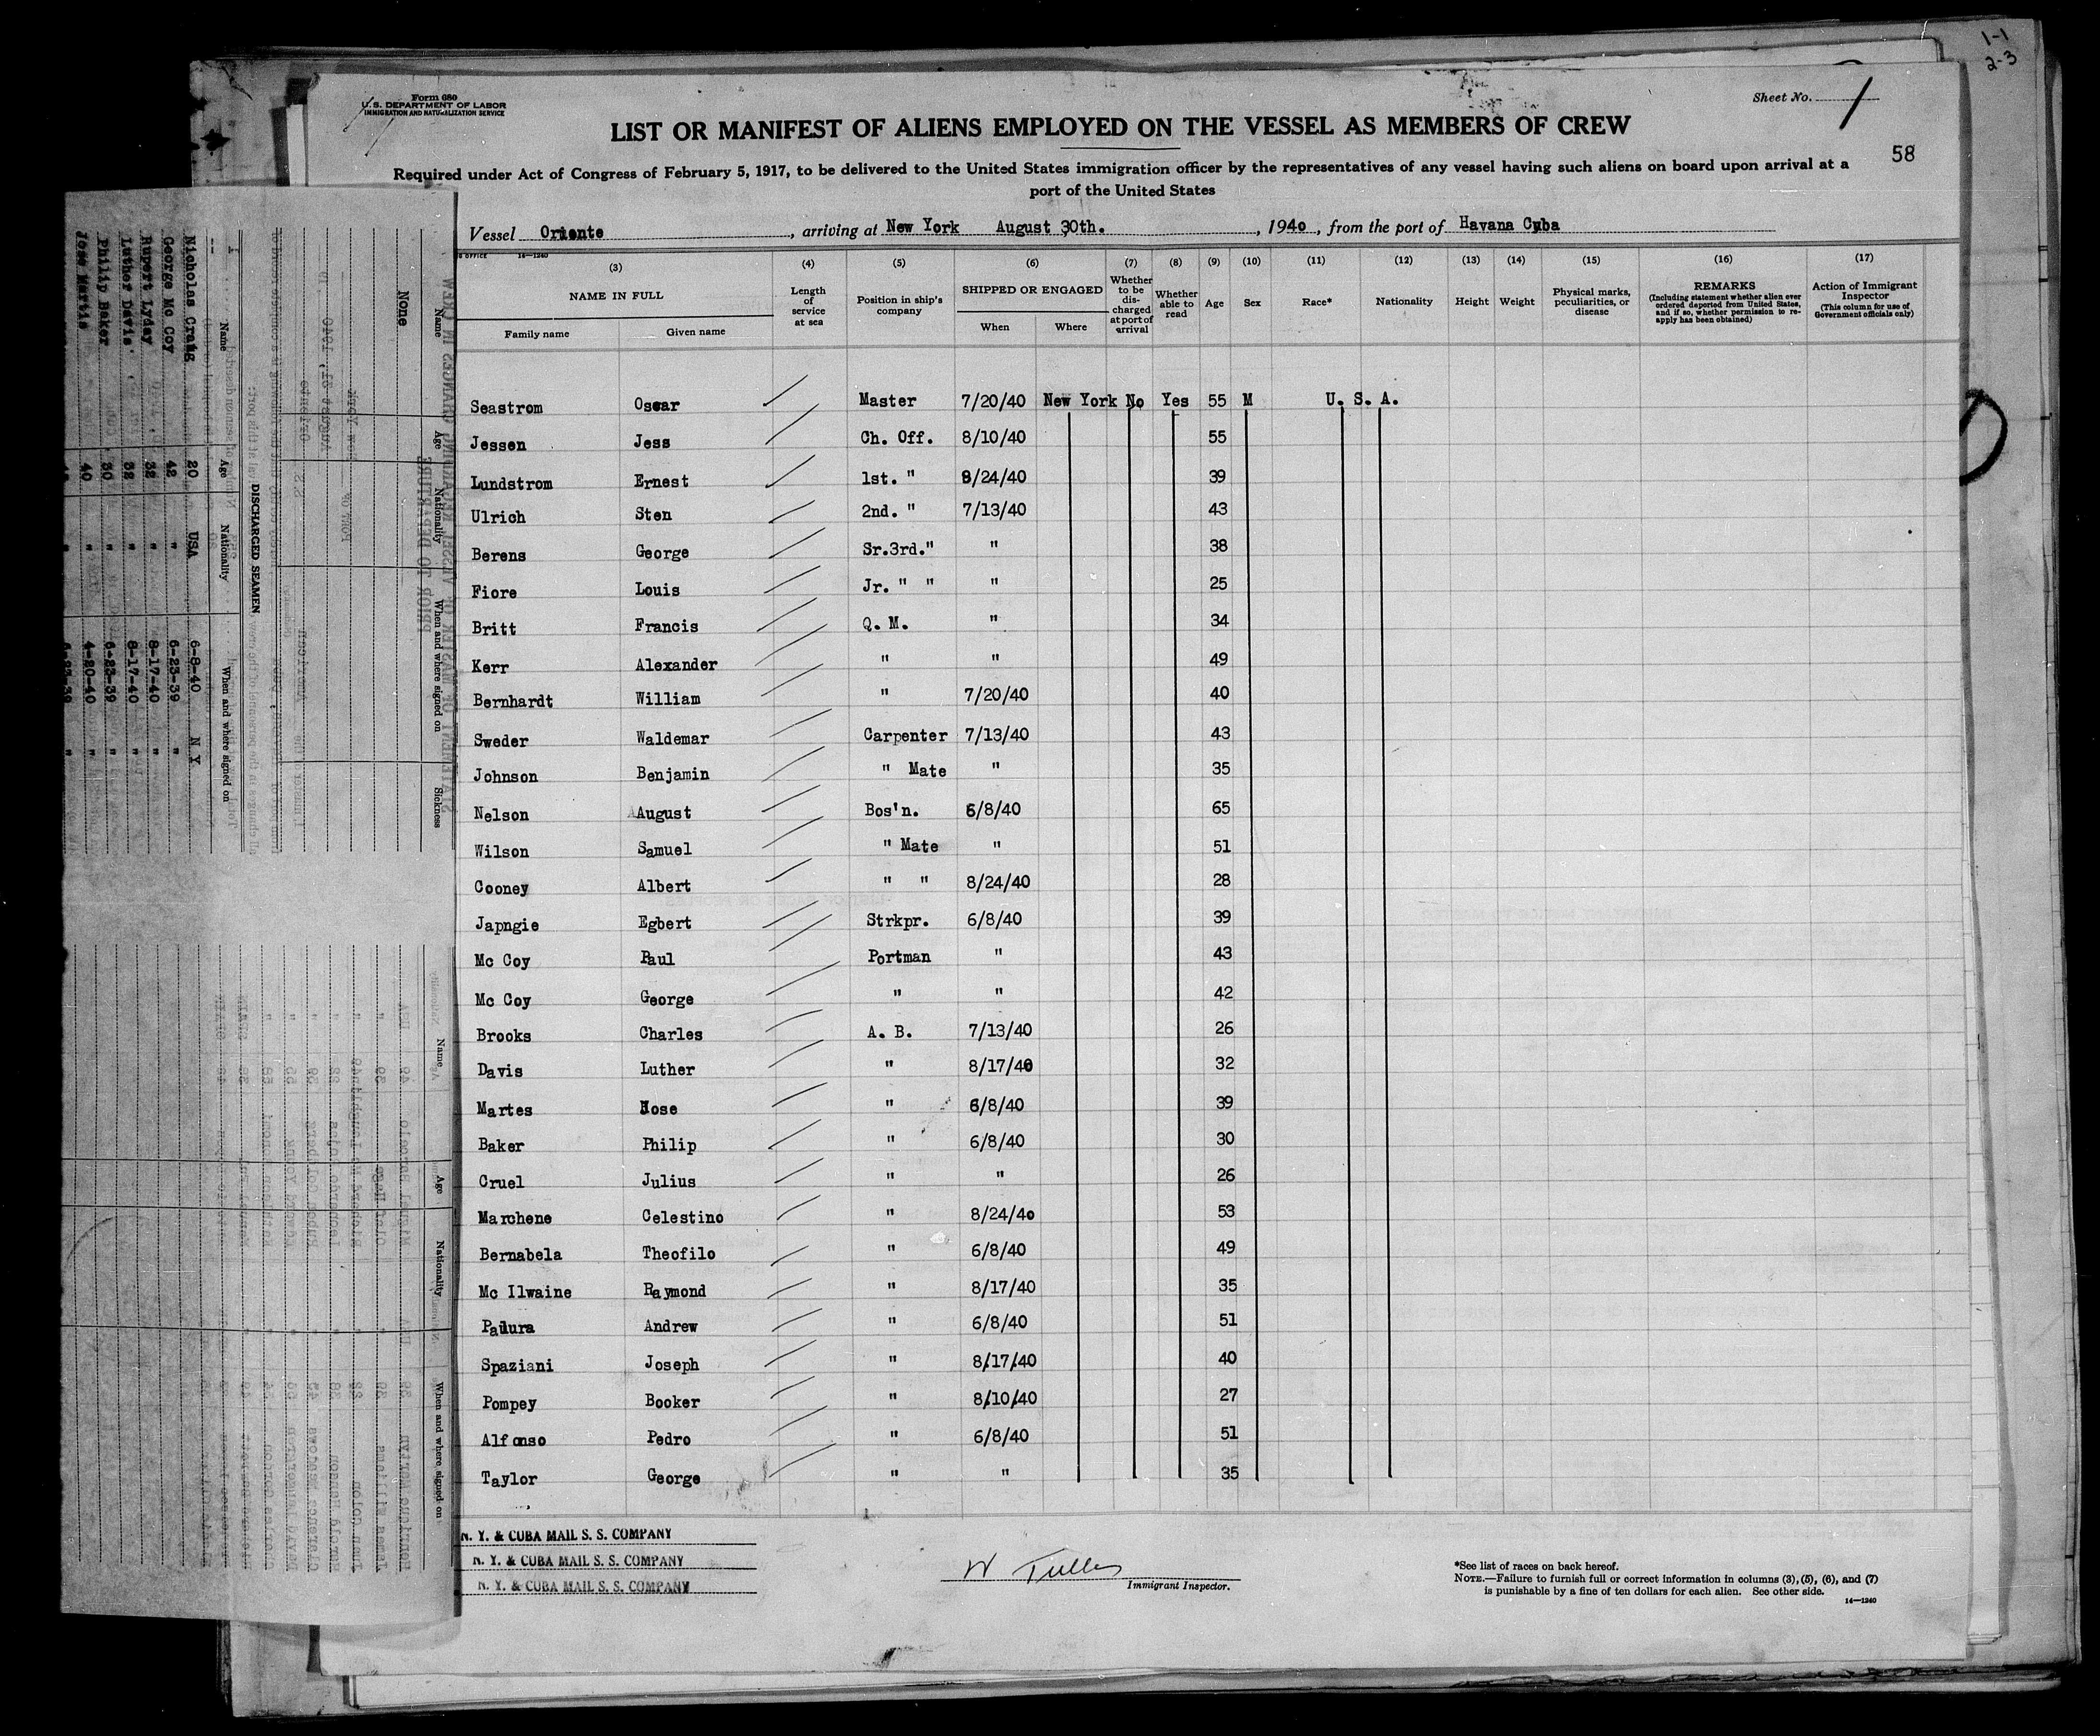 1-1
2-3
Form 680
U. S. DEPARTMENT OF LABOR
IMMIGRATION AND NATURALIZATION SERVICE
Sheet No. 1
LIST OR MANIFEST OF ALIENS EMPLOYED ON THE VESSEL AS MEMBERS OF CREW
58
Required under Act of Congress of February 5, 1917, to be delivered to the United States immigration officer by the representatives of any vessel having such aliens on board upon arrival at a
port of the United States
Vessel Oriente, arriving at New York August 30th., 1940, from the port of Havana Cuba
14-1240
(3) (4) (5) (6) (7) (8) (9) (10) (11) (12) (13) (14) (15) (16) (17)
NAME IN FULL Length of service at sea Position in ship's company SHIPPED OR ENGAGED Whether to be discharged at port of arrival Whether able to read Age Sex Race* Nationality Height Weight Physical marks, peculiarities, or disease REMARKS (Including statement whether alien ever ordered deported from United States, and if so, whether permission to reapply has been obtained) Action of Immigrant Inspector (This column for use of Government officials only)
Family name Given name When Where
Seastrom Oscar Master 7/20/40 New York No Yes 55 M U. S. A.
Jessen Jess Ch. Off. 8/10/40 55
Lundstrom Ernest 1st. " 8/24/40 39
Ulrich Sten 2nd. " 7/13/40 43
Berens George Sr.3rd." " 38
Fiore Louis Jr. " " " 25
Britt Francis Q. M. " 34
Kerr Alexander " " 49
Bernhardt William " 7/20/40 40
Sweder Waldemar Carpenter 7/13/40 43
Johnson Benjamin " Mate " 35
Nelson August Bos'n. 6/8/40 65
Wilson Samuel " Mate " 51
Cooney Albert " " 8/24/40 28
Japngie Egbert Strkpr. 6/8/40 39
Mc Coy Paul Portman " 43
Mc Coy George " " 42
Brooks Charles A. B. 7/13/40 26
Davis Luther " 8/17/40 32
Martes Hose " 6/8/40 39
Baker Philip " 6/8/40 30
Cruel Julius " " 26
Marchene Celestino " 8/24/40 53
Bernabela Theofilo " 6/8/40 49
Mc Ilwaine Raymond " 8/17/40 35
Andrew " 6/8/40 51
Spaziani Joseph " 8/17/40 40
Pompey Booker " 8/10/40 27
Alfonso Pedro " 6/8/40 51
Taylor George " " 35
N. Y. & CUBA MAIL S. S. COMPANY
N. Y. & CUBA MAIL S. S. COMPANY
N. Y. & CUBA MAIL S. S. COMPANY
Immigrant Inspector.
*See list of races on back hereof.
NOTE.—Failure to furnish full or correct information in columns (3), (5), (6), and (7)
is punishable by a fine of ten dollars for each alien. See other side.
14-1240
Name Age Nationality When and where signed on Sickness
None
DISCHARGED SEAMEN
Name Age Nationality When and where signed on
Nicholas Craig 20 USA 6-8-40 N Y
George Mc Coy 42 " 6-23-39 "
Rupert Lyday 32 " 8-17-40 "
Luther Davis 32 " 8-17-40 "
Philip Baker 30 " 6-23-39 "
Jose Martis 40 " 4-20-40 "
Name Age Nationality When and where signed on